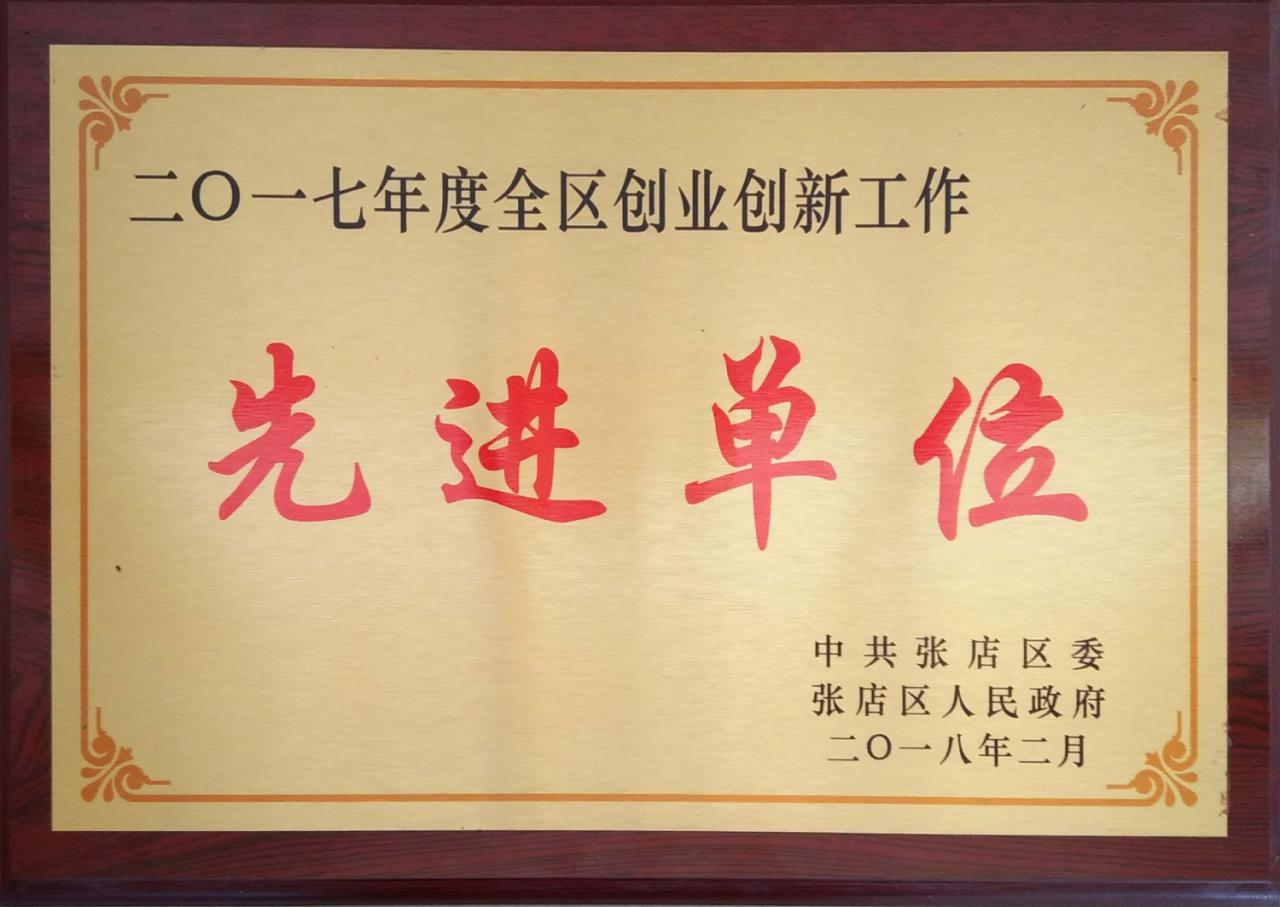 二〇一七年度全区创业创新工作
先进单位
中共张店区委
张店区人民政府
二〇一八年二月